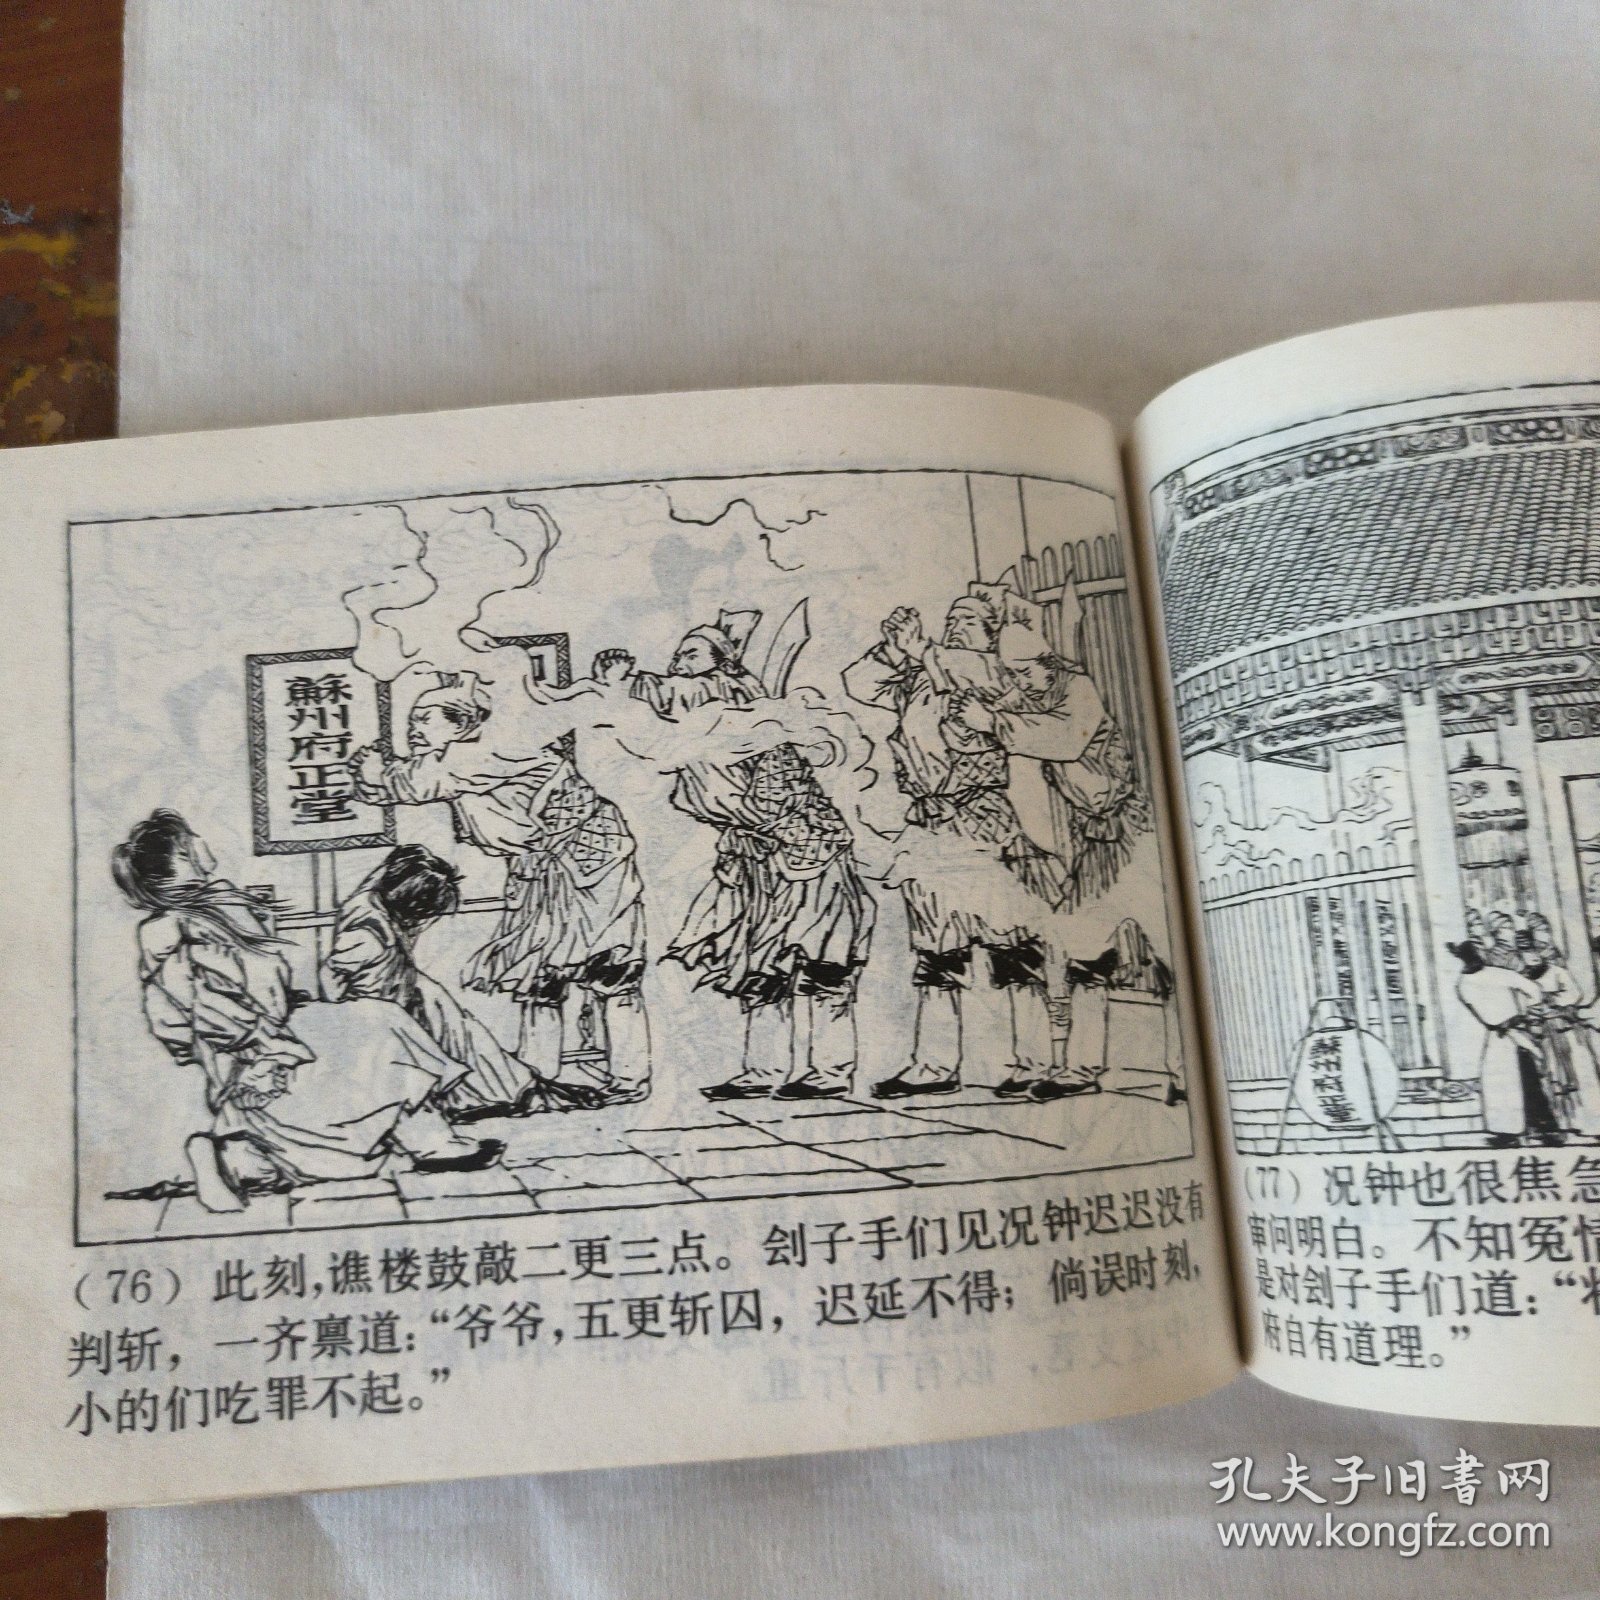 蘇州府正堂
(76) 此刻，谯楼鼓敲二更三点。刽子手们见况钟迟迟没有
判斩，一齐禀道：“爷爷，五更斩囚，迟延不得；倘误时刻，
小的们吃罪不起。”
蘇州府正堂
(77) 况钟也很焦急
审问明白。不知冤情
是对刽子手们道：“
府自有道理。”
孔夫子旧书网
www.kongfz.com